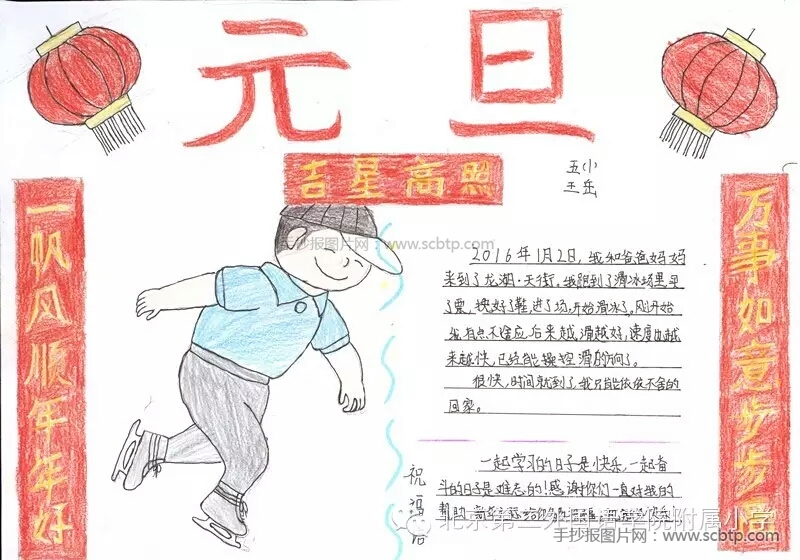 元旦
吉星高照
五(1)
王岳
一帆风顺年年好
万事如意步步高
手抄报图片网：www.scbtp.com
2016年1月2日，我和爸爸妈妈
来到了龙湖·天街。我跑到了滑冰场里买
了票，换好了鞋，进了场，开始滑冰了。刚开始
我有点不适应，后来越滑越好，速度也越
来越快，已经能操控滑的方向了。
很快，时间就到了，我只能依依不舍的
回家。
祝福语
一起学习的日子是快乐，一起奋
斗的日子是难忘的！感谢你们一直对我的
帮助
北京第二外国语学院附属小学
手抄报图片网
www.scbtp.com